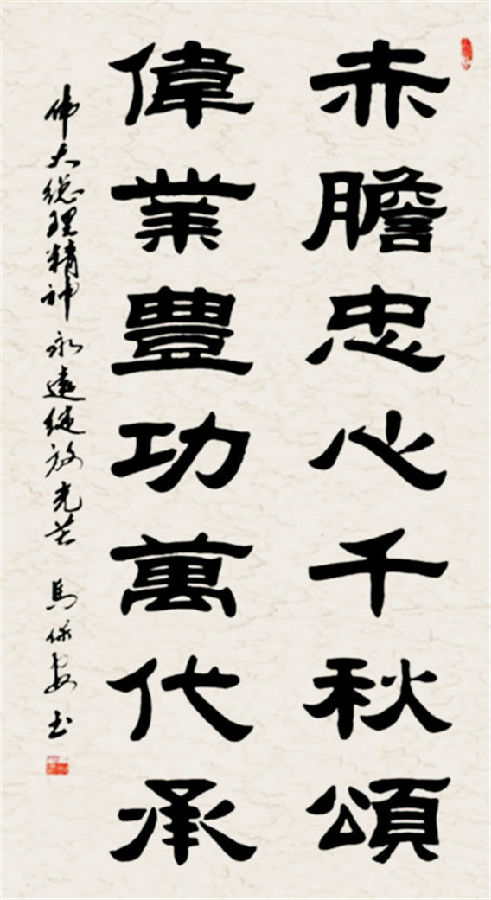 赤膽忠心千秋頌
偉業豐功萬代承
伟大総理精神永遠綻放光芒 馬保安书